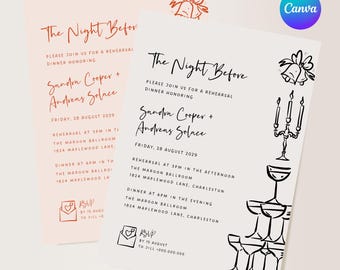 Canva
The Night Before
PLEASE JOIN US FOR A REHEARSAL
DINNER HONORING
Sandra Cooper +
Andreas Solace
FRIDAY, 18 AUGUST 2029
REHEARSAL AT 5PM IN THE AFTERNOON
THE MAROON BALLROOM
1824 MAPLEWOOD LANE, CHARLESTON
DINNER AT 6PM IN THE EVENING
THE MAROON BALLROOM
1824 MAPLEWOOD LANE, CHARLESTON
RSVP
BY 10 AUGUST
TO JILL +000.000.000
The Night Before
PLEASE JOIN US FOR A
DINNER HONORING
Sandra Cooper
Andreas Solace
FRIDAY, 18 AUGUST
REHEARSAL AT 5PM
THE MAROON BALLR
1824 MAPLEWOOD
DINNER AT 6PM
THE MAROON BA
1824 MAPLEWOOD
RSVP
BY 10
TO JI